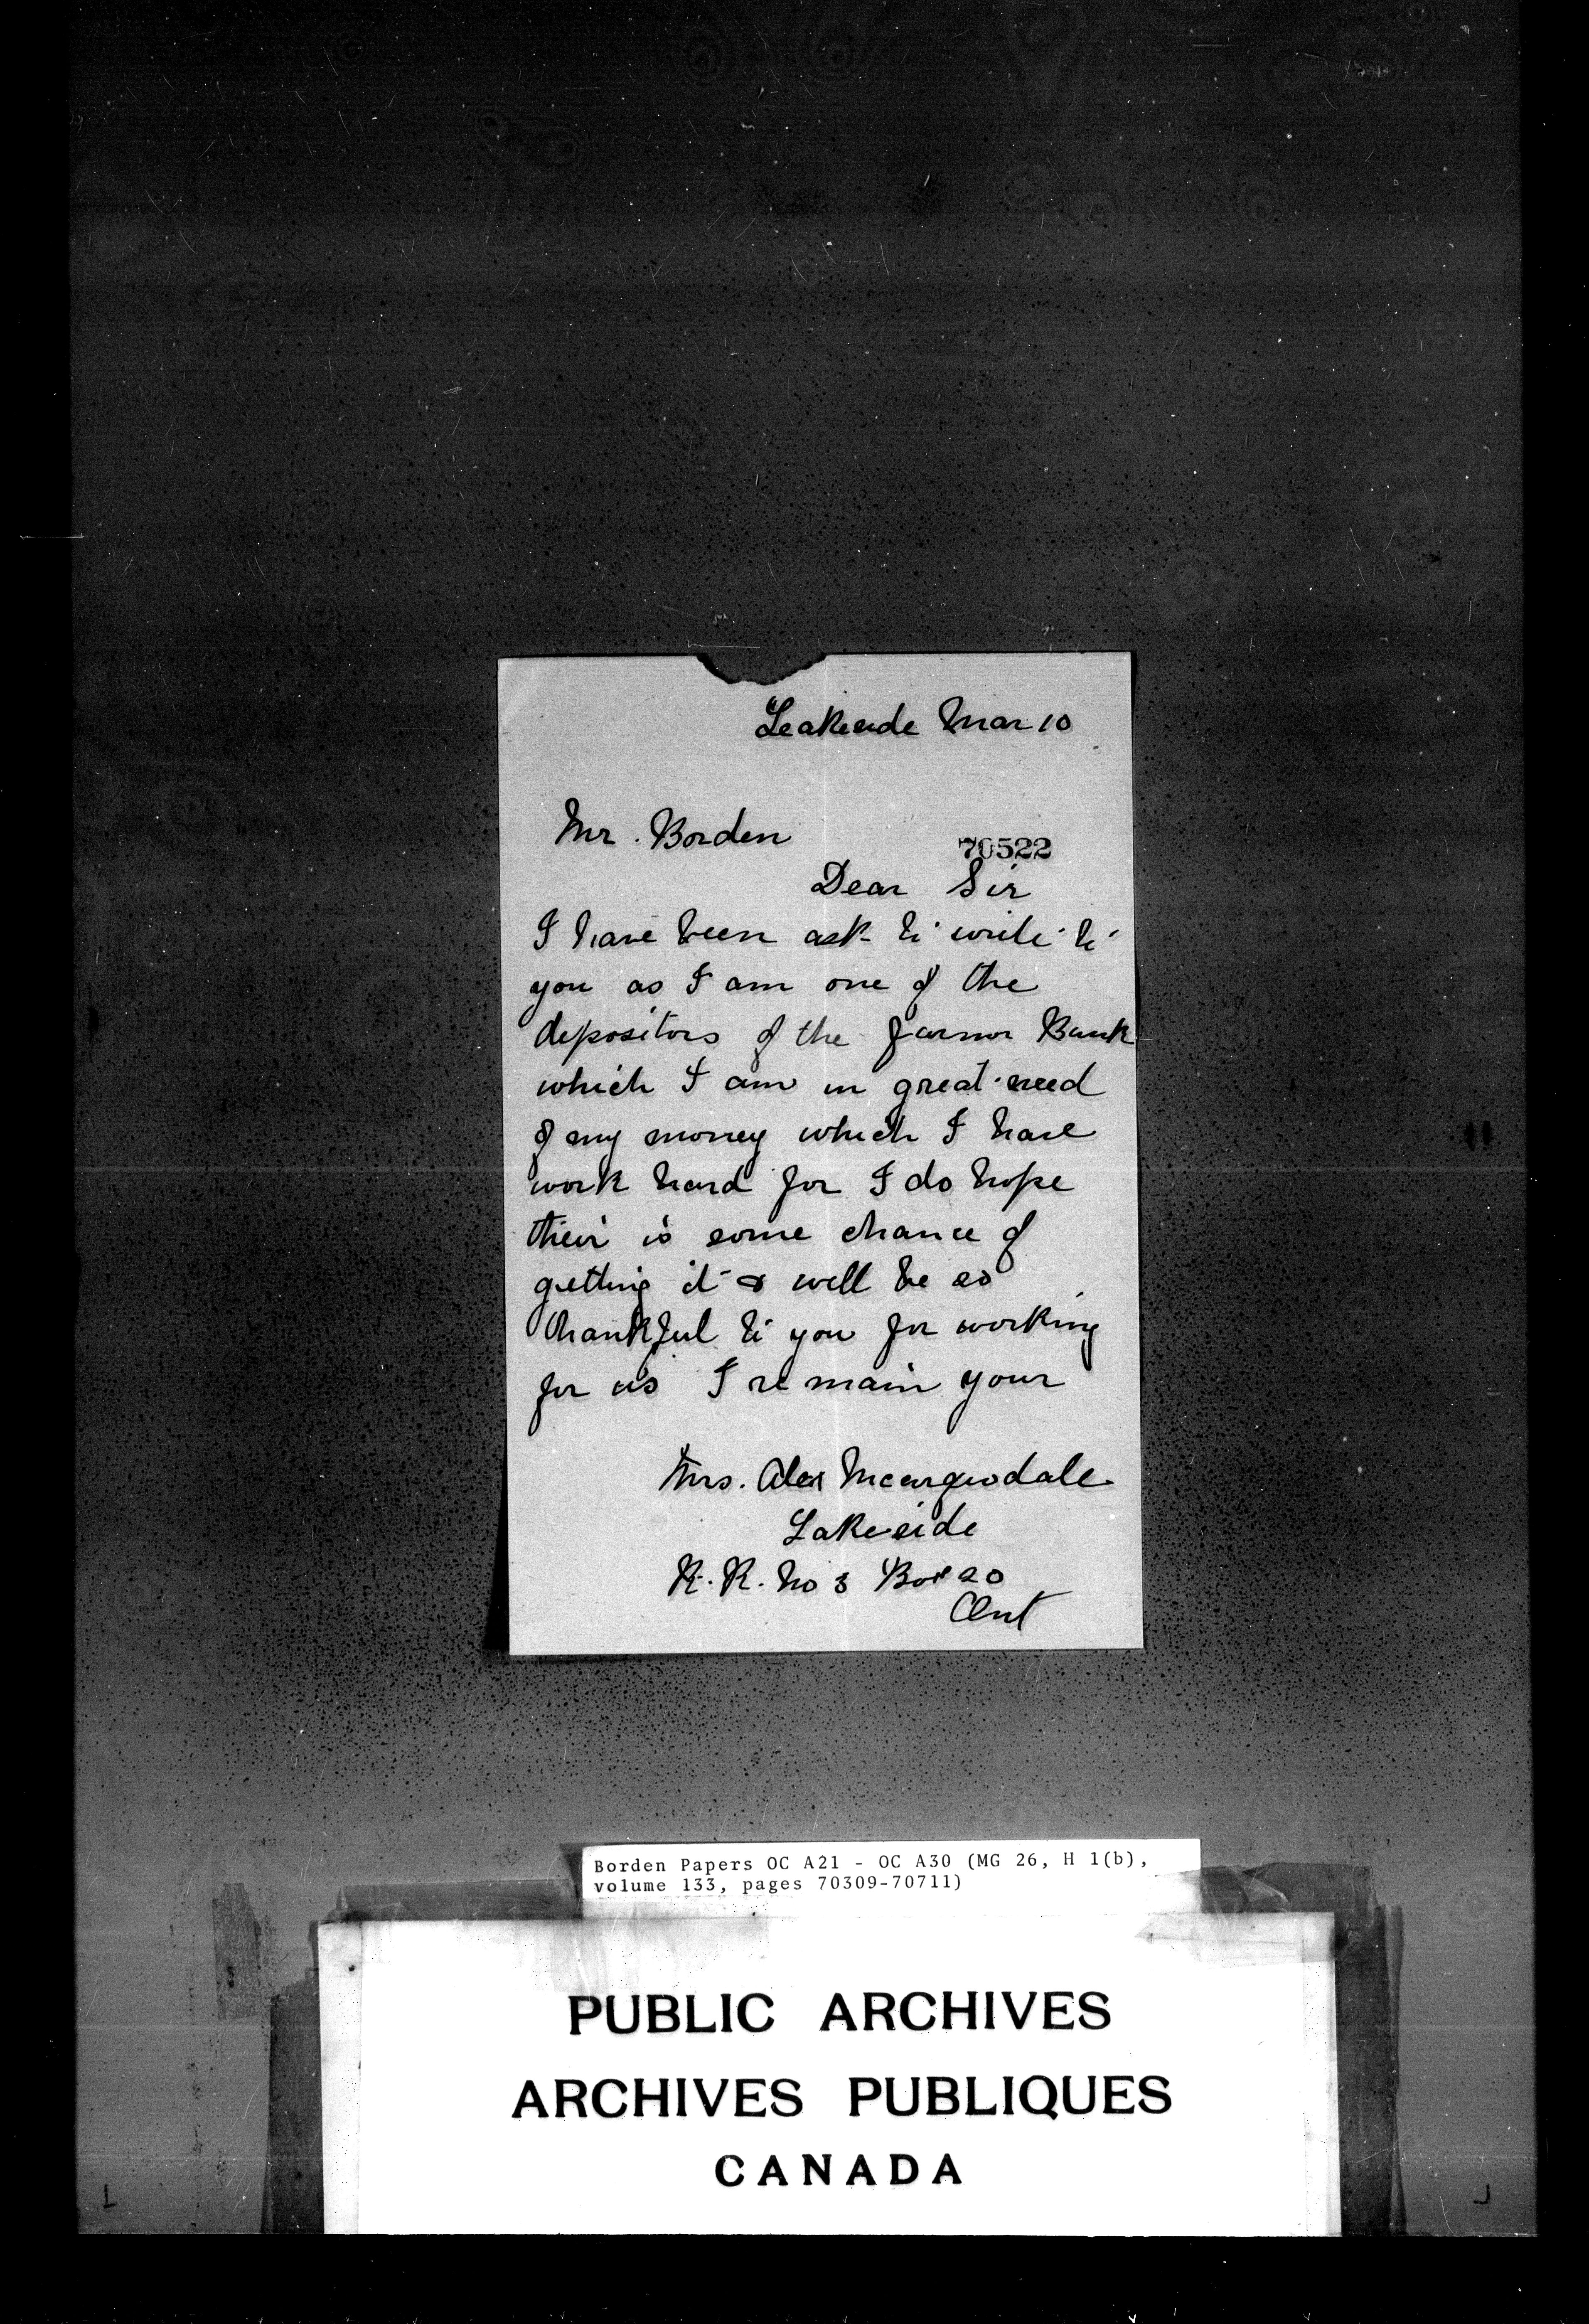 Leakeside Mar 10
Mr. Borden
70522
Dear Sir
I have been ask to write to
you as I am one of the
depositors of the farmor Bank
which I am in great need
of my money which I have
work hard for I do hope
their is some chance of
getting it & will be so
thankful to you for working
for us I remain your
Mrs. Alex
Lakeside
R. R. No 3 Box 20
Ont
Borden Papers OC A21 - OC A30 (MG 26, H 1(b),
volume 133, pages 70309-70711)
PUBLIC ARCHIVES
ARCHIVES PUBLIQUES
CANADA